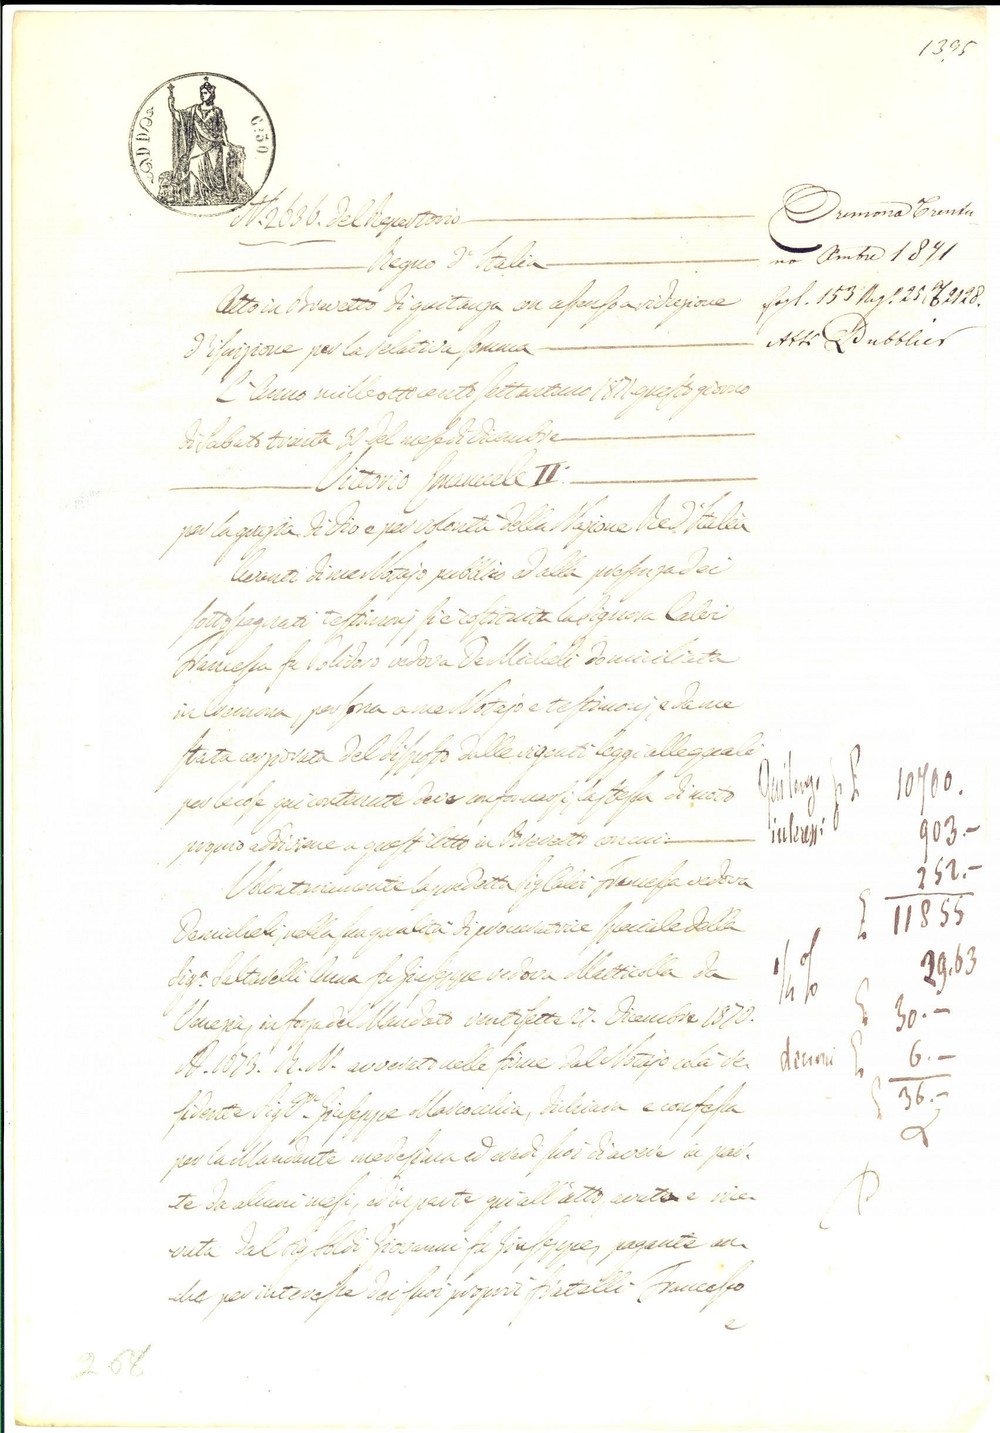 1395
0:50
N. 2696. del Repertorio
Regno d'Italia
Atto in Brevetto di quitanza con assenso a riduzione
d'Iscrizione per la relativa somma
L'Anno mille otto cento settantuno 1871 questo giorno
di Sabato trenta 30 del mese di dicembre
Vittorio Emanuele II.
per la grazia di Dio e per volontà della Nazione Re d'Italia
Avanti di me Notajo pubblico ed alla presenza dei
sottosegnati testimonj si è costituita la Signora Calvi
Francesca fu Polidoro vedova De Micheli domiciliata
in Cremona, persona a me Notajo e testimonj, e da me
stata del disposto dalle vigenti leggi alle quali
per le cose qui contenute deve conformarsi, la stessa di moto
proprio addiviene a quest'Atto in Brevetto
Volontariamente la predetta Sig. Calvi Francesca vedova
Demicheli nella sua qualità di procuratrice speciale della
Sig.a Anna fu Giuseppe vedova da
Venezia, in forza del Mandato ventisette 27. Dicembre 1870.
N. 1673. R. N. avverato nelle firme dal Notajo colà re-
sidente Sig. Dr. Giuseppe, dichiara e confessa
per la Mandante medesima ed eredi suoi di avere in par-
te da alcuni mesi, ed in parte qui all'atto avuto e rice-
vuta dal Sig. Soldi Giovanni fu Giuseppe, pagante an-
che per interesse dei suoi proprj fratelli Francesco
e
Cremona Trenta
uno Xmbre 1871
fogl. 153 Reg. 25 N. 2128.
Atti Pubblici
Quitanza p £ 10700.
interessi 903.-
252.-
£ 11855
1/4 % 29.63
£ 30.-
decimi £ 6.-
£ 36.-
268